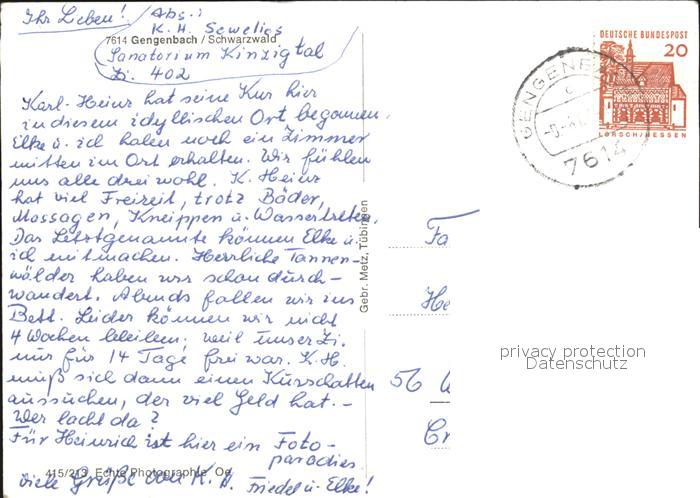 Ihr Lieben! Abs.:
K. H. Sewelies
7614 Gengenbach / Schwarzwald
Sanatorium Kinzigtal
Zi. 402
Karl-Heinz hat seine Kur hier
in diesem idyllischen Ort begonnen.
Elke u. ich haben noch ein Zimmer
mitten im Ort erhalten. Wir fühlen
uns alle drei wohl. K. Heinz
hat viel Freizeit, trotz Bäder,
Massagen, Kneippen u. Wassertreten.
Das Letztgenannte können Elke u.
ich mitmachen. Herrliche Tannen-
wälder haben wir schon durch-
wandert. Abends fallen wir ins
Bett. Leider können wir nicht
4 Wochen bleiben, weil unser Zi.
nur für 14 Tage frei war. K. H.
muß sich dann einen Kurschatten
aussuchen, der viel Geld hat.-
Wer lacht da?
Für Heinrich ist hier ein Foto-
paradies.
415/213 Echte Photographie Oe
viele Grüße von K. H. Friedel u. Elke!
Gebr. Metz, Tübingen
DEUTSCHE BUNDESPOST
20
LORSCH/HESSEN
GENGENB
c
7614
Fa
He
56
Cr
privacy protection
Datenschutz